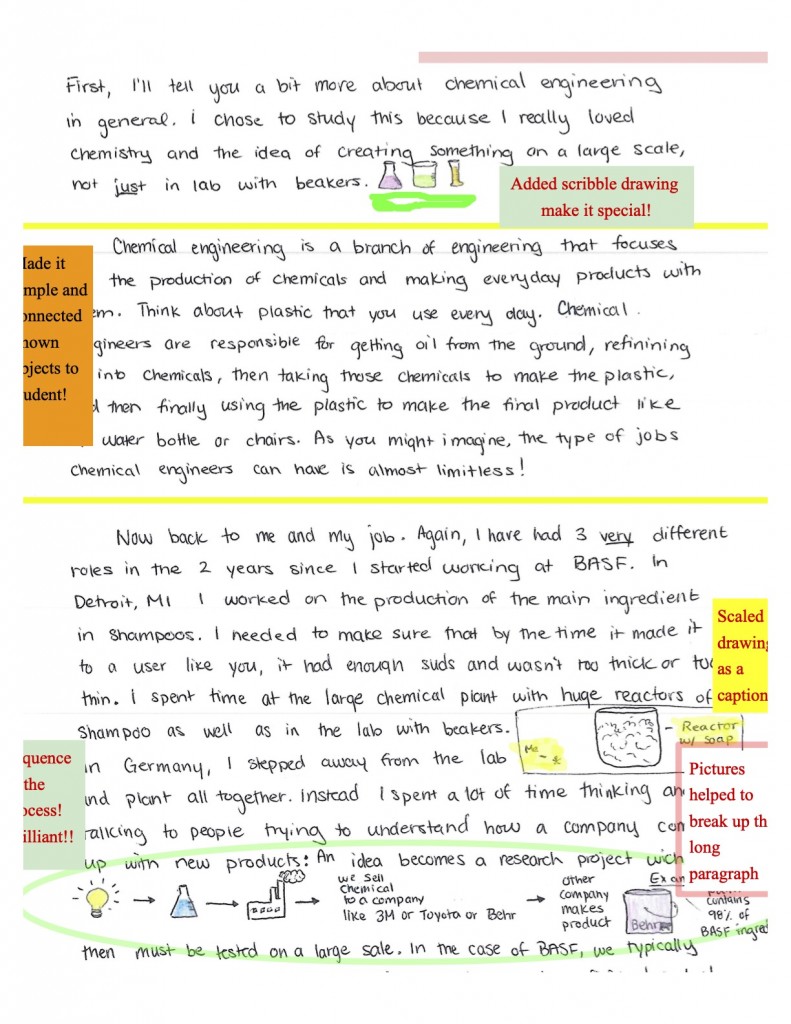 First, I'll tell you a bit more about chemical engineering
in general. i chose to study this because I really loved
chemistry and the idea of creating something on a large scale,
not just in lab with beakers.
Added scribble drawing
make it special!
Chemical engineering is a branch of engineering that focuses
the production of chemicals and making everyday products with
em. Think about plastic that you use every day. Chemical
gineers are responsible for getting oil from the ground, refinining
into chemicals, then taking those chemicals to make the plastic,
d then finally using the plastic to make the final product like
water bottle or chairs. As you might imagine, the type of jobs
chemical engineers can have is almost limitless!
lade it
mple and
onnected
nown
ojects to
udent!
Now back to me and my job. Again, I have had 3 very different
roles in the 2 years since I started working at BASF. In
Detroit, MI I worked on the production of the main ingredient
in shampoos. I needed to make sure that by the time it made it
to a user like you, it had enough suds and wasn't too thick or too
thin. i spent time at the large chemical plant with huge reactors of
Shampoo as well as in the lab with beakers.
Me
Reactor
w/ soap
Scaled
drawing
as a
caption
in Germany, I stepped away from the lab
and plant all together. instead I spent a lot of time thinking an
talking to people trying to understand how a company con
up with new products: An idea becomes a research project wich
quence
the
ocess!
illiant!!
Pictures
helped to
break up th
long
paragraph
we sell
chemical
to a company
like 3M or Toyota or Behr
other
company
makes
product
Exam
Behr
contains
98% of
BASF ingred
then must be tested on a large sale. In the case of BASF, we typically